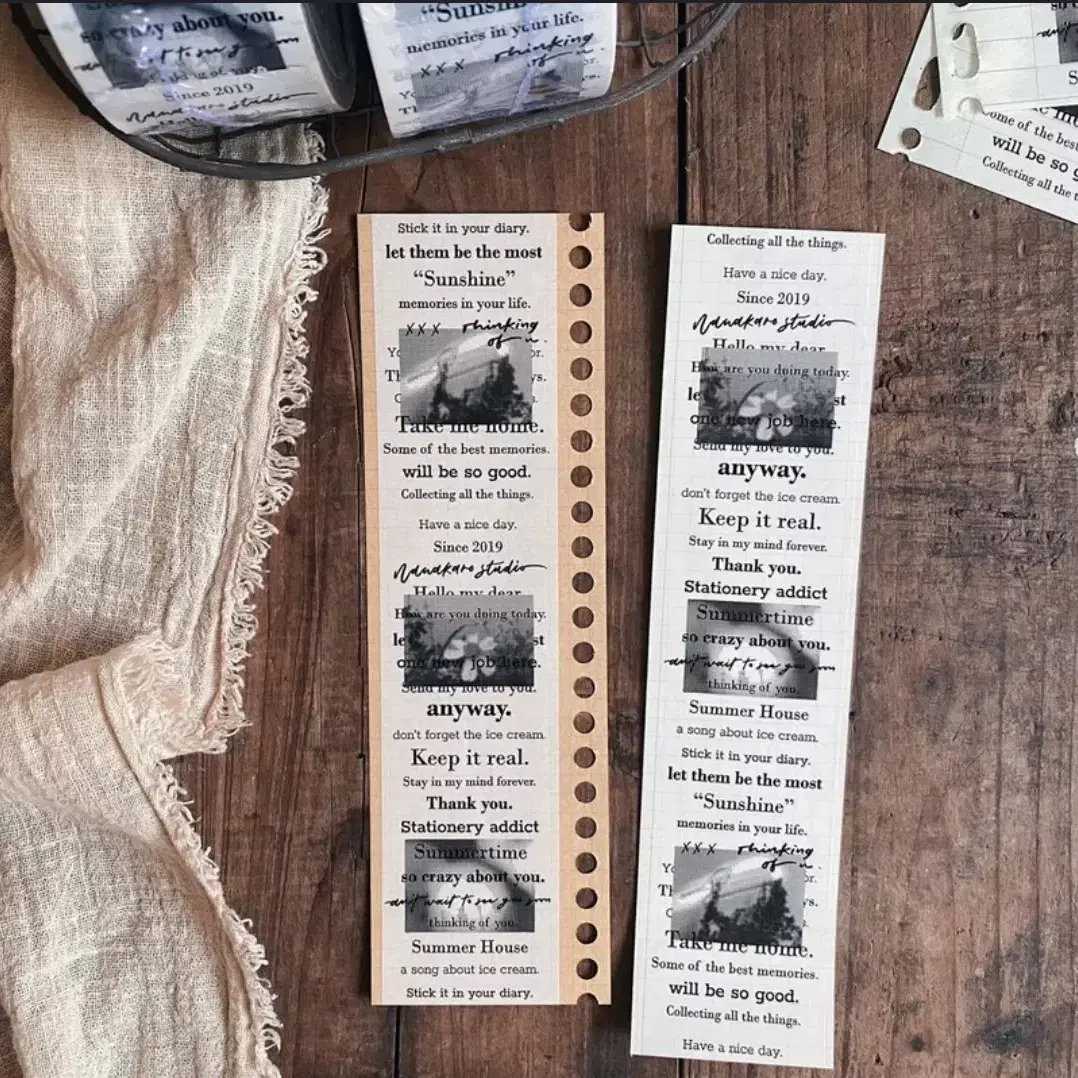 so crazy about you.
Since 2019
Nanakaro studio
"Sunsh
memories in your life.
XXX thinking
of u.
Come of the best
will be so g
Collecting all the t
Stick it in your diary.
let them be the most
“Sunshine”
memories in your life.
XXX thinking
of u.
Take me home.
Some of the best memories.
will be so good.
Collecting all the things.
Have a nice day.
Since 2019
Nanakaro studio
Hello my dear
How are you doing today.
le st
one new job here.
Send my love to you.
anyway.
don't forget the ice cream.
Keep it real.
Stay in my mind forever.
Thank you.
Stationery addict
Summertime
so crazy about you.
can't wait to see you soon
thinking of you.
Summer House
a song about ice cream.
Stick it in your diary.
Collecting all the things.
Have a nice day.
Since 2019
Nanakaro studio
Hello my dear
How are you doing today.
le st
one new job here.
Send my love to you.
anyway.
don't forget the ice cream.
Keep it real.
Stay in my mind forever.
Thank you.
Stationery addict
Summertime
so crazy about you.
can't wait to see you soon
thinking of you.
Summer House
a song about ice cream.
Stick it in your diary.
let them be the most
“Sunshine”
memories in your life.
XXX thinking
of u.
Take me home.
Some of the best memories.
will be so good.
Collecting all the things.
Have a nice day.